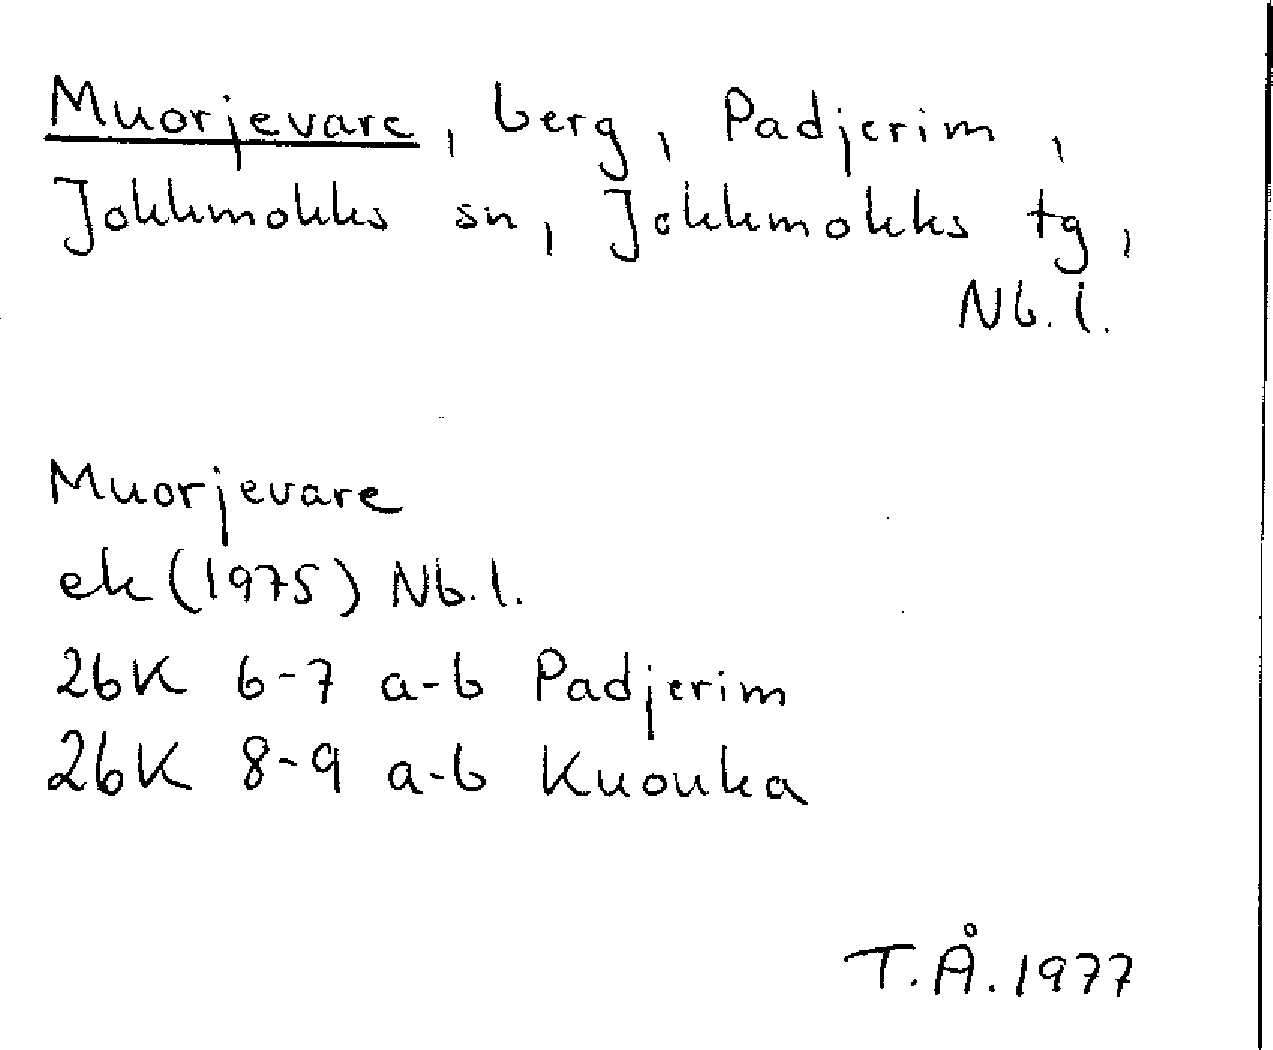 Muorjevare, berg, Padjerim,
Jokkmokks sn, Jokkmokks tg,
Nb.l.
Muorjevare
ek (1975) Nb.l.
26K 6-7 a-b Padjerim
26K 8-9 a-b Kuouka
T.Å. 1977